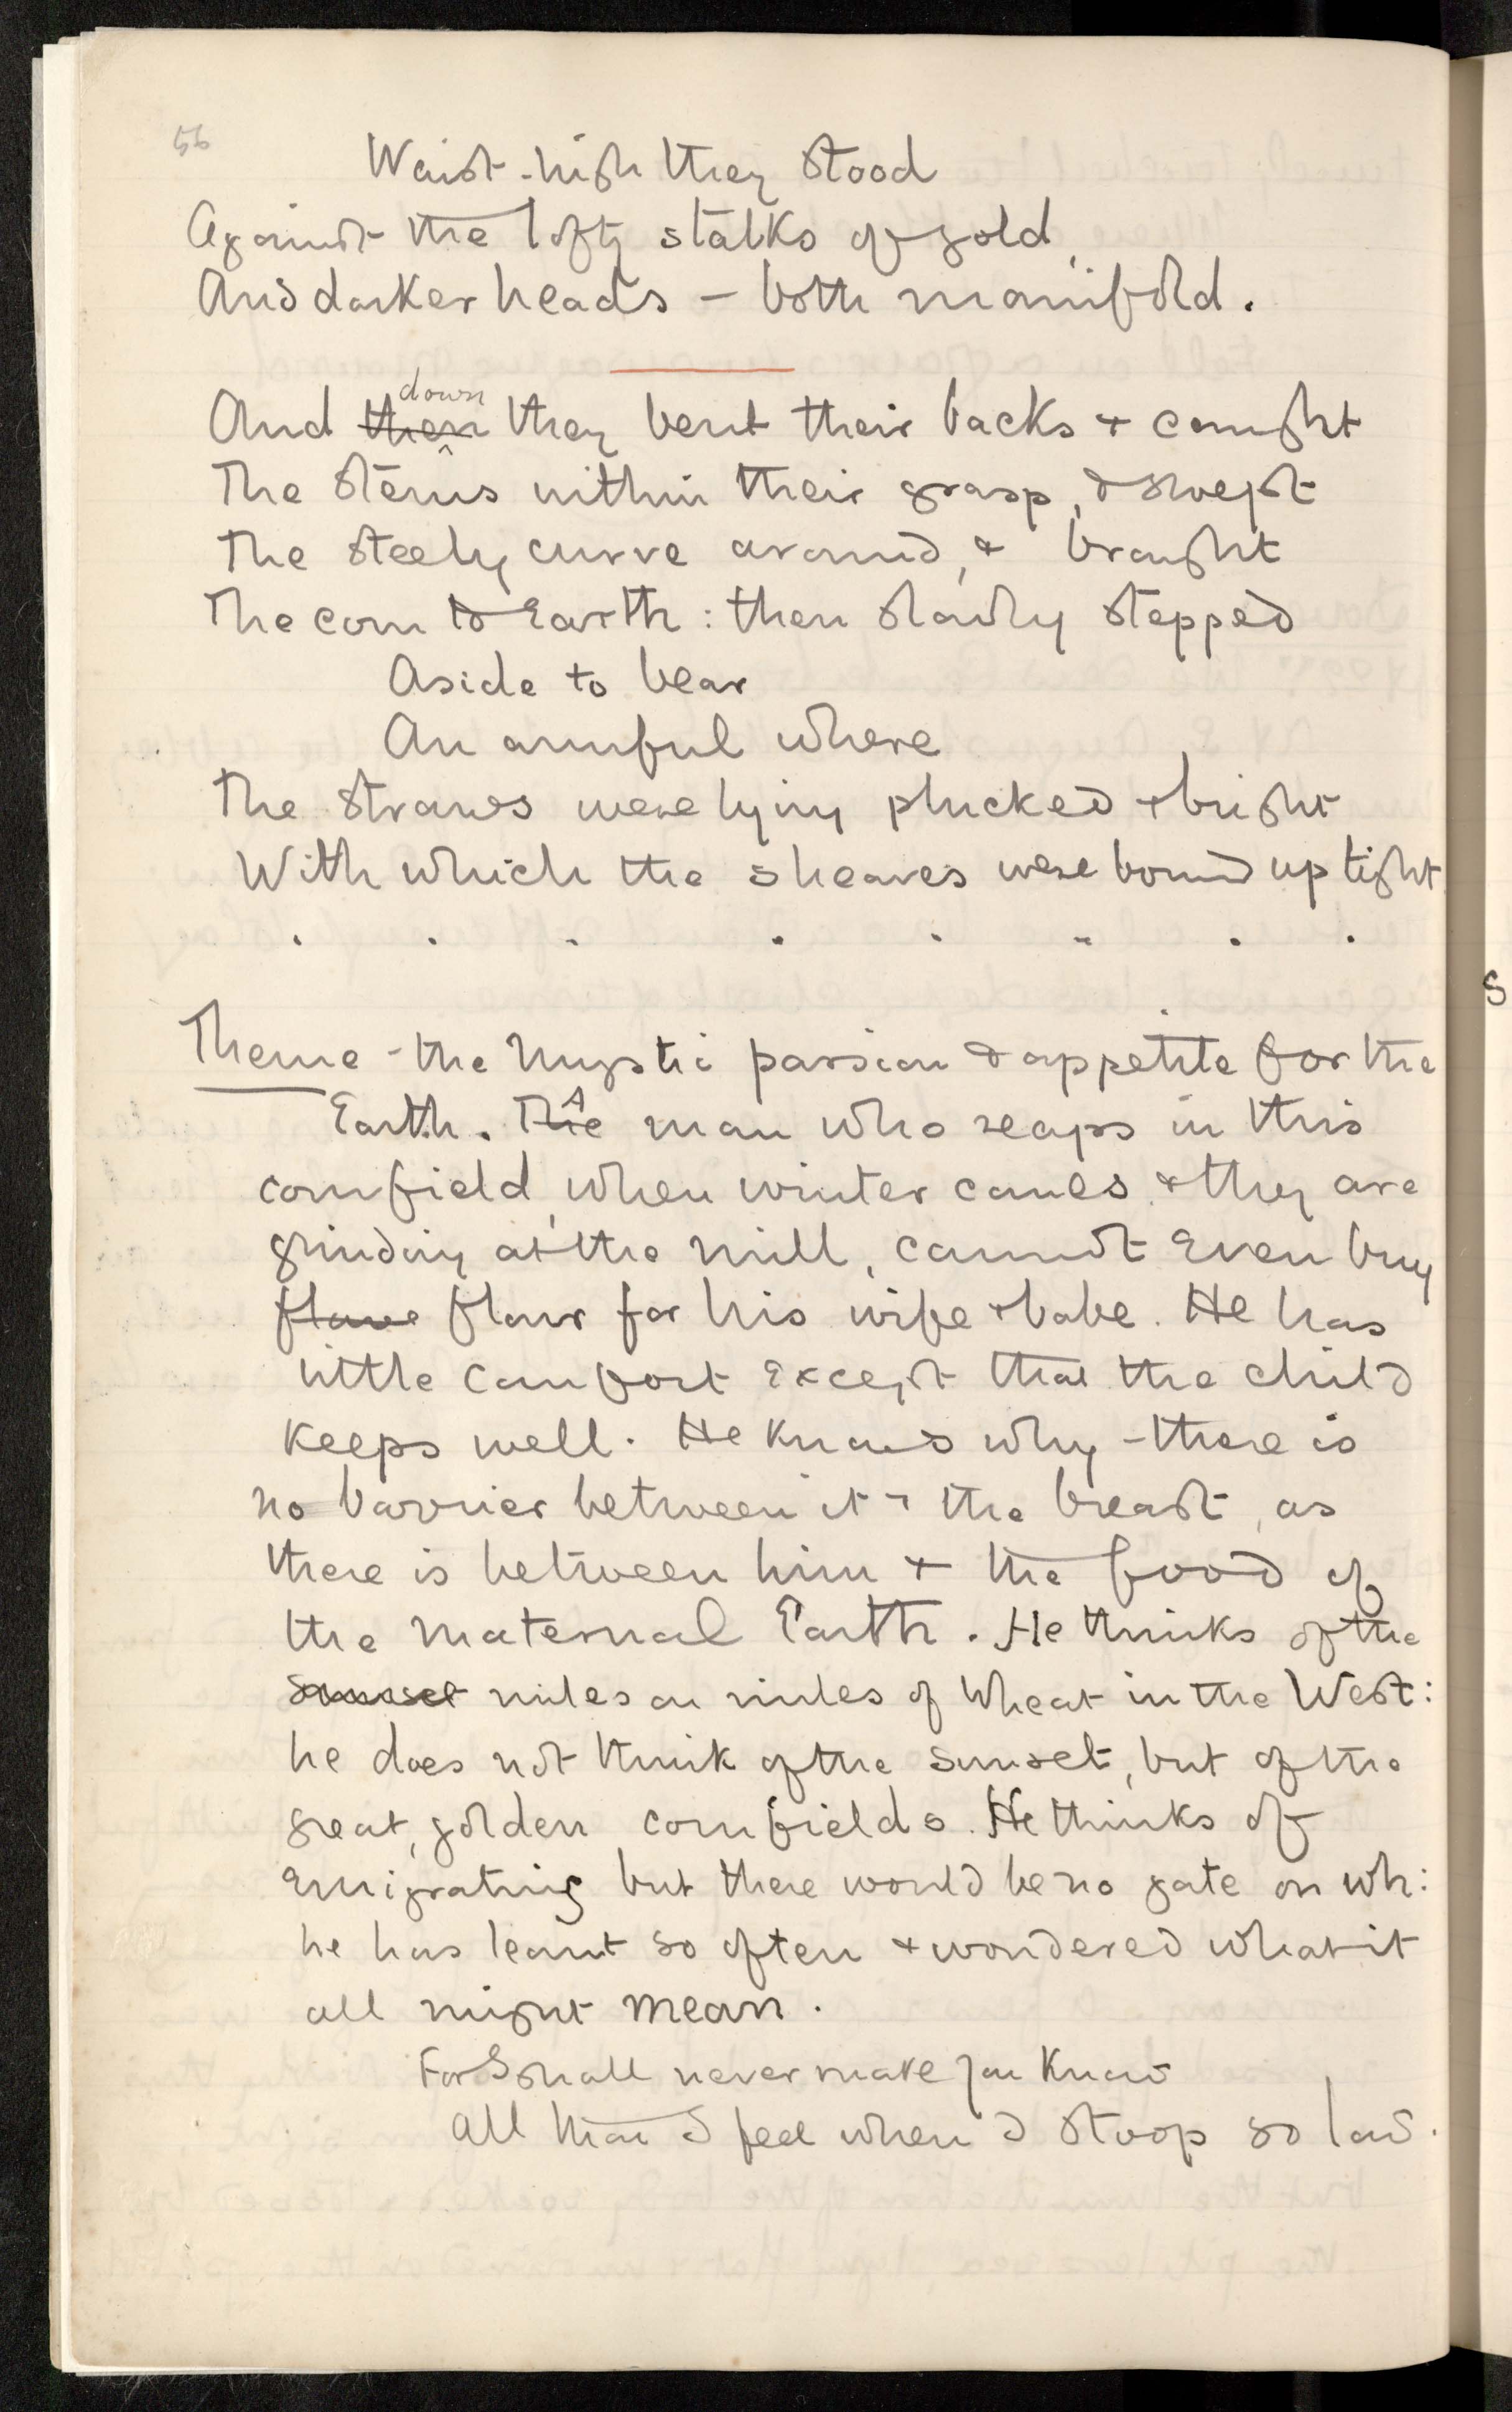 56
Waist-high they stood
Against the lofty stalks of gold,
And darker heads – both manifold.
down
And then they bent their backs & caught
The stems within their grasp, & swept
The steely curve around, & brought
The corn to Earth: then slowly stepped
Aside to bear
An armful where
The straws were lying plucked & bright
With which the sheaves were bound up tight
. . . . . . . .
Theme – the Mystic passion & appetite for the
Earth. The A man who reaps in this
cornfield, when winter comes & they are
grinding at the mill, cannot even buy
flowe flour for his wife & babe. He has
little comfort except that the child
keeps well. He knows why – there is
no barrier between it & the breast, as
there is between him & the food of
the maternal Earth. He thinks of the
sunset miles on miles of wheat in the West:
he does not think of the sunset, but of the
great, golden cornfields. He thinks of
Emigrating but there would be no gate on wh:
he has leant so often & wondered what it
all might mean.
For I shall never make you know
All that I feel when I stoop so low.
S